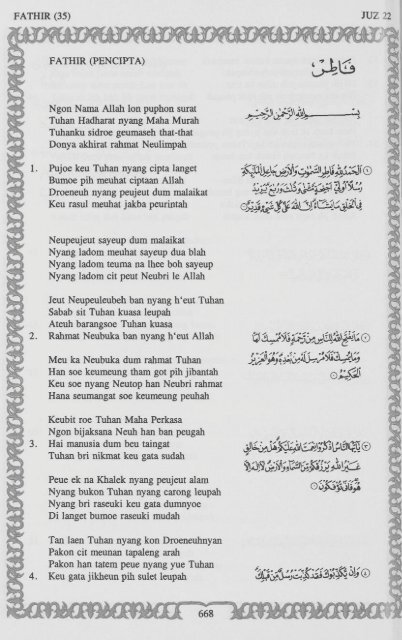 FATHIR (35)
JUZ 22
FATHIR (PENCIPTA)
فَاطِر
Ngon Nama Allah lon puphon surat
Tuhan Hadharat nyang Maha Murah
Tuhanku sidroe geumaseh that-that
Donya akhirat rahmat Neulimpah
بِسْمِ اللَّهِ الرَّحْمَٰنِ الرَّحِيمِ
1. Pujoe keu Tuhan nyang cipta langet
Bumoe pih meuhat ciptaan Allah
Droeneuh nyang peujeut dum malaikat
Keu rasul meuhat jakba peurintah
① الْحَمْدُ لِلَّهِ فَاطِرِ السَّمٰوٰتِ وَالْأَرْضِ جَاعِلِ الْمَلٰٓئِكَةِ
رُسُلًا أُولِيٓ أَجْنِحَةٍ مَّثْنٰى وَثُلٰثَ وَرُبٰعَ يَزِيدُ
فِي الْخَلْقِ مَا يَشَآءُ إِنَّ اللَّهَ عَلٰى كُلِّ شَيْءٍ قَدِيرٌ
Neupeujeut sayeup dum malaikat
Nyang ladom meuhat sayeup dua blah
Nyang ladom teuma na lhee boh sayeup
Nyang ladom cit peut Neubri le Allah
Jeut Neupeuleubeh ban nyang h'eut Tuhan
Sabab sit Tuhan kuasa leupah
Ateuh barangsoe Tuhan kuasa
2. Rahmat Neubuka ban nyang h'eut Allah
② مَا يَفْتَحِ اللَّهُ لِلنَّاسِ مِنْ رَّحْمَةٍ فَلَا مُمْسِكَ لَهَا
وَمَا يُمْسِكْ فَلَا مُرْسِلَ لَهُ مِنْ بَعْدِهِ وَهُوَ الْعَزِيزُ
الْحَكِيمُ
Meu ka Neubuka dum rahmat Tuhan
Han soe keumeung tham got pih jibantah
Keu soe nyang Neutop han Neubri rahmat
Hana seumangat soe keumeung peuhah
Keubit roe Tuhan Maha Perkasa
Ngon bijaksana Neuh han ban peugah
3. Hai manusia dum beu taingat
Tuhan bri nikmat keu gata sudah
③ يٰٓأَيُّهَا النَّاسُ اذْكُرُوا نِعْمَتَ اللَّهِ عَلَيْكُمْ هَلْ مِنْ خَالِقٍ
غَيْرُ اللَّهِ يَرْزُقُكُمْ مِّنَ السَّمَآءِ وَالْأَرْضِ لَآ إِلٰهَ إِلَّا
هُوَ فَأَنّٰى تُؤْفَكُونَ
Peue ek na Khalek nyang peujeut alam
Nyang bukon Tuhan nyang carong leupah
Nyang bri raseuki keu gata dumnyoe
Di langet bumoe raseuki mudah
Tan laen Tuhan nyang kon Droeneuhnyan
Pakon cit meunan tapaleng arah
Pakon han tatem peue nyang yue Tuhan
4. Keu gata jikheun pih sulet leupah
④ وَإِنْ يُّكَذِّبُوكَ فَقَدْ كُذِّبَتْ رُسُلٌ مِّنْ قَبْلِكَ
668